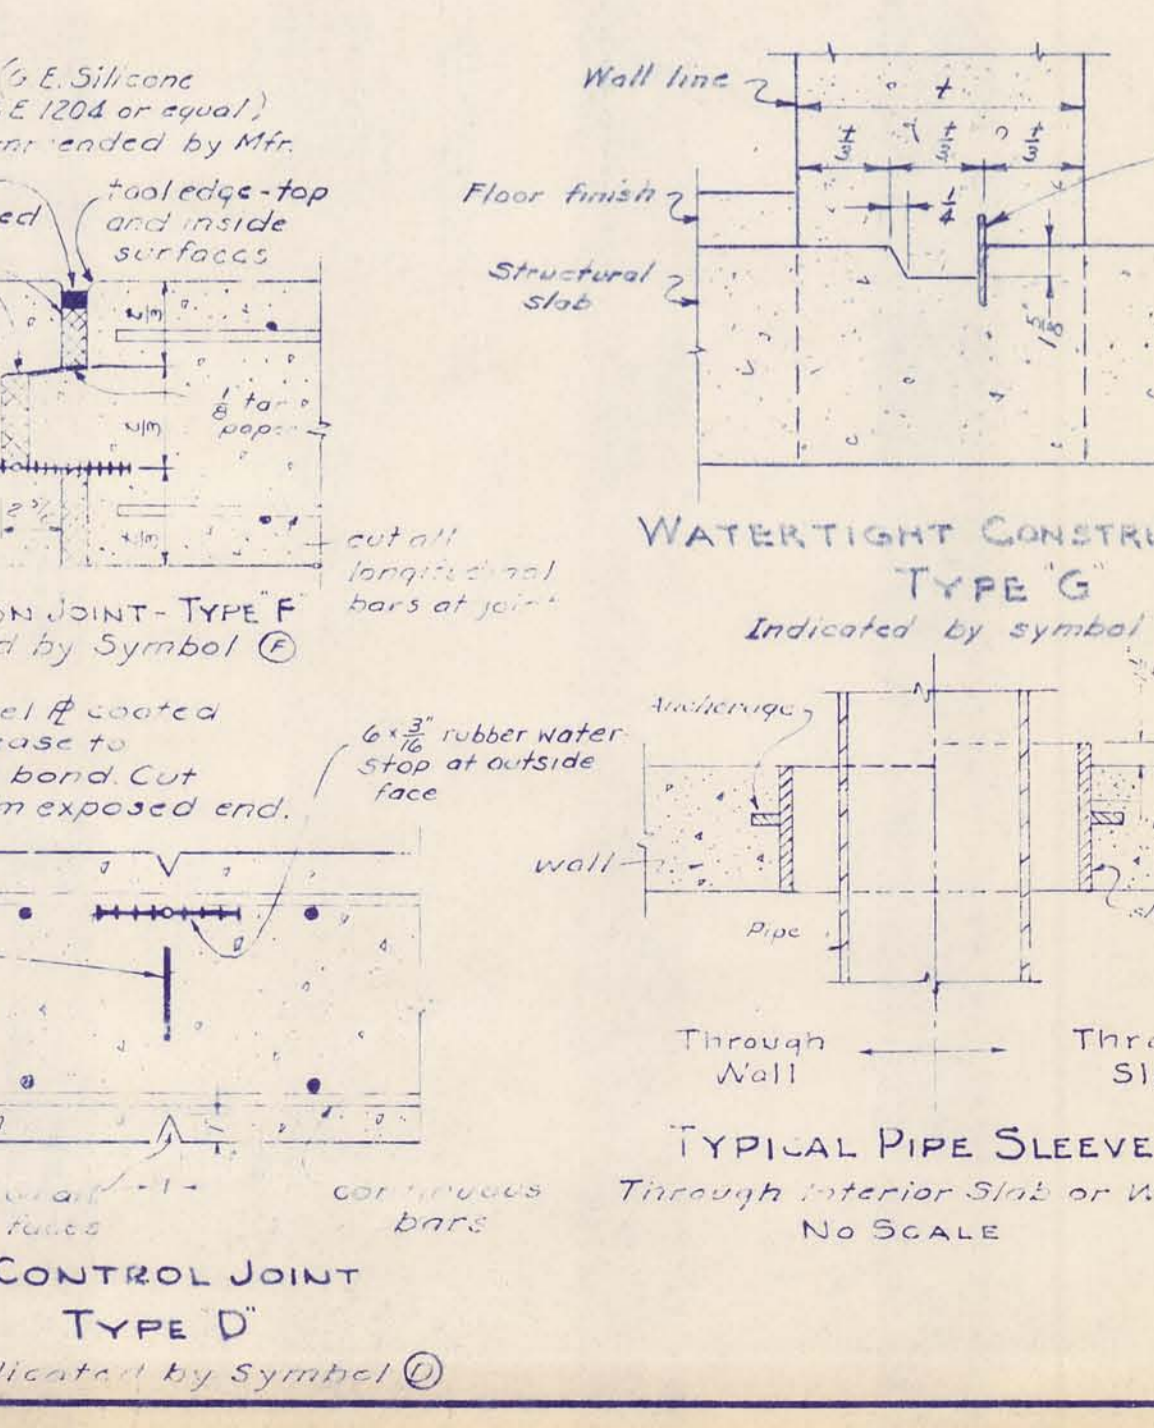 G.E. Silicone
E 1204 or equal)
ended by Mfr.
ed
tool edge-top
and inside
surfaces
t/3
1/8 tar
paper
t/3
2 3/4
t/3
cut all
longitudinal
bars at joint
ON JOINT - TYPE "F"
d by Symbol Ⓕ
el ⅊ coated
ease to
bond. Cut
m exposed end.
6 x 3/16" rubber water
stop at outside
face
continuous
bars
faces
1
CONTROL JOINT
TYPE "D"
dicated by Symbol Ⓓ
Wall line
t
t/3 t/3 t/3
Floor finish
1/4
Structural
slab
1 5/8"
WATERTIGHT CONSTRU
TYPE "G"
Indicated by symbol
Anchorage
wall
Pipe
Through
Wall
Thro
Sl
TYPICAL PIPE SLEEVE
Through interior Slab or W
NO SCALE